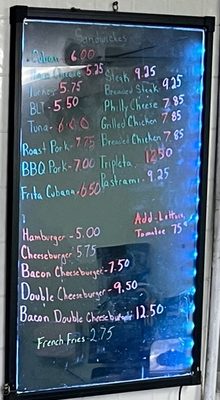 Sandwiches
Cuban - 6.00
Ham & Cheese 5.25
Turkey 5.75
BLT - 5.50
Tuna - 6.00
Roast Pork - 7.75
BBQ Pork - 7.00
Frita Cubana - 6.50
Steak 9.25
Breaded Steak 9.25
Philly Cheese 7.85
Grilled Chicken 7.85
Breaded Chicken 7.85
Tripleta 12.50
Pastrami - 9.25
Add - Lettuce,
Tomatoe 75¢
Hamburger - 5.00
Cheeseburger 5.75
Bacon Cheeseburger - 7.50
Double Cheeseburger - 9.50
Bacon Double Cheeseburger 12.50
French Fries 2.75